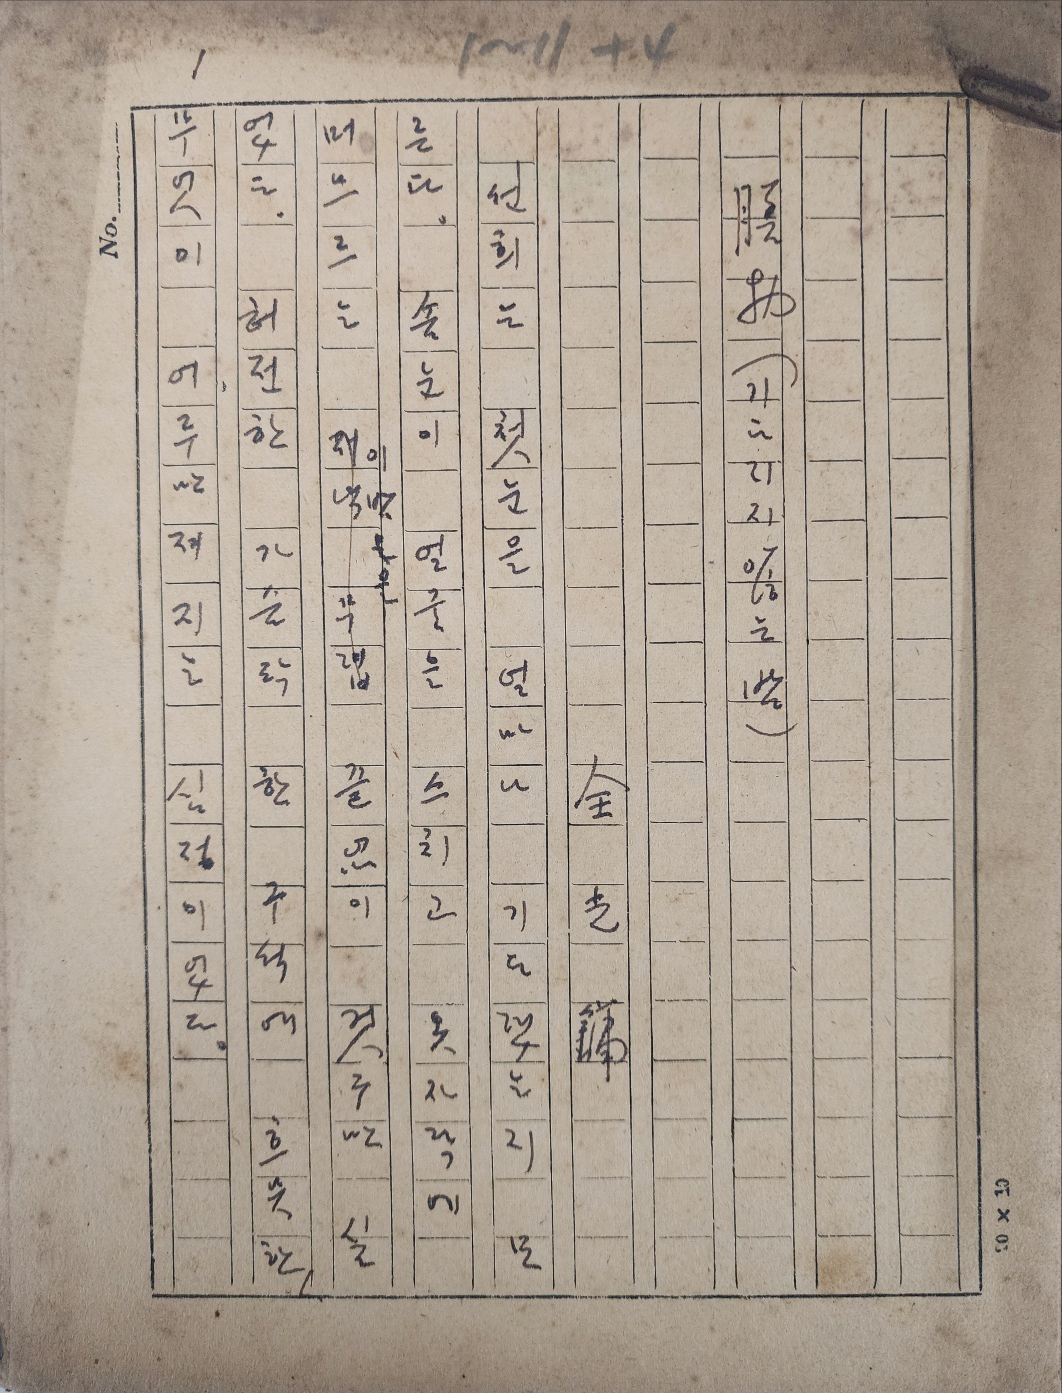 1~11 +4
1
No.
(기다리지 않는 밤)
全光鏞
선희는 첫눈을 얼마나 기다렸는지 모
른다. 솜눈이 얼굴을 스치고 옷자락에
머므르는 무렵 끝없이 걷구만 싶
었다. 허전한 가슴락 한 구석에 흐뭇한,
무엇이 어루만져지는 심정이었다.
20 × 10